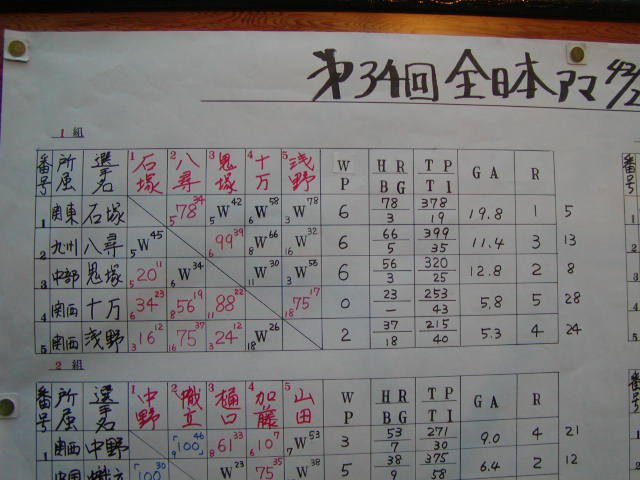 第34回 全日本アマ
1 組
番号 所属 選手名 1石塚 2八尋 3鬼塚 4十万 5浅野 WP HR/BG TP/TI GA R
1 関東 石塚 5 78 34 5 W 42 6 W 58 3 W 78 6 78/3 378/19 19.8 1 5
2 九州 八尋 5 W 45 6 99 39 8 W 66 16 W 32 6 66/5 399/35 11.4 3 13
3 中部 鬼塚 5 20 11 6 W 34 11 W 30 3 W 56 6 56/3 320/25 12.8 2 8
4 関西 十万 6 34 23 8 56 19 11 88 22 18 75 17 0 23/- 253/43 5.8 5 28
5 関西 浅野 3 16 12 16 75 37 3 24 12 18 W 26 2 37/18 215/40 5.3 4 24
2 組
番号 所属 選手名 1中野 2職立 3樋口 4加藤 5山田 WP HR/BG TP/TI GA R
1 関西 中野 9 100 46 8 61 33 6 10 7 7 W 53 3 53/7 271/30 9.0 4 21
100 30 W 23 75 35 W 38 5 38/9 375/58 6.4 2 12